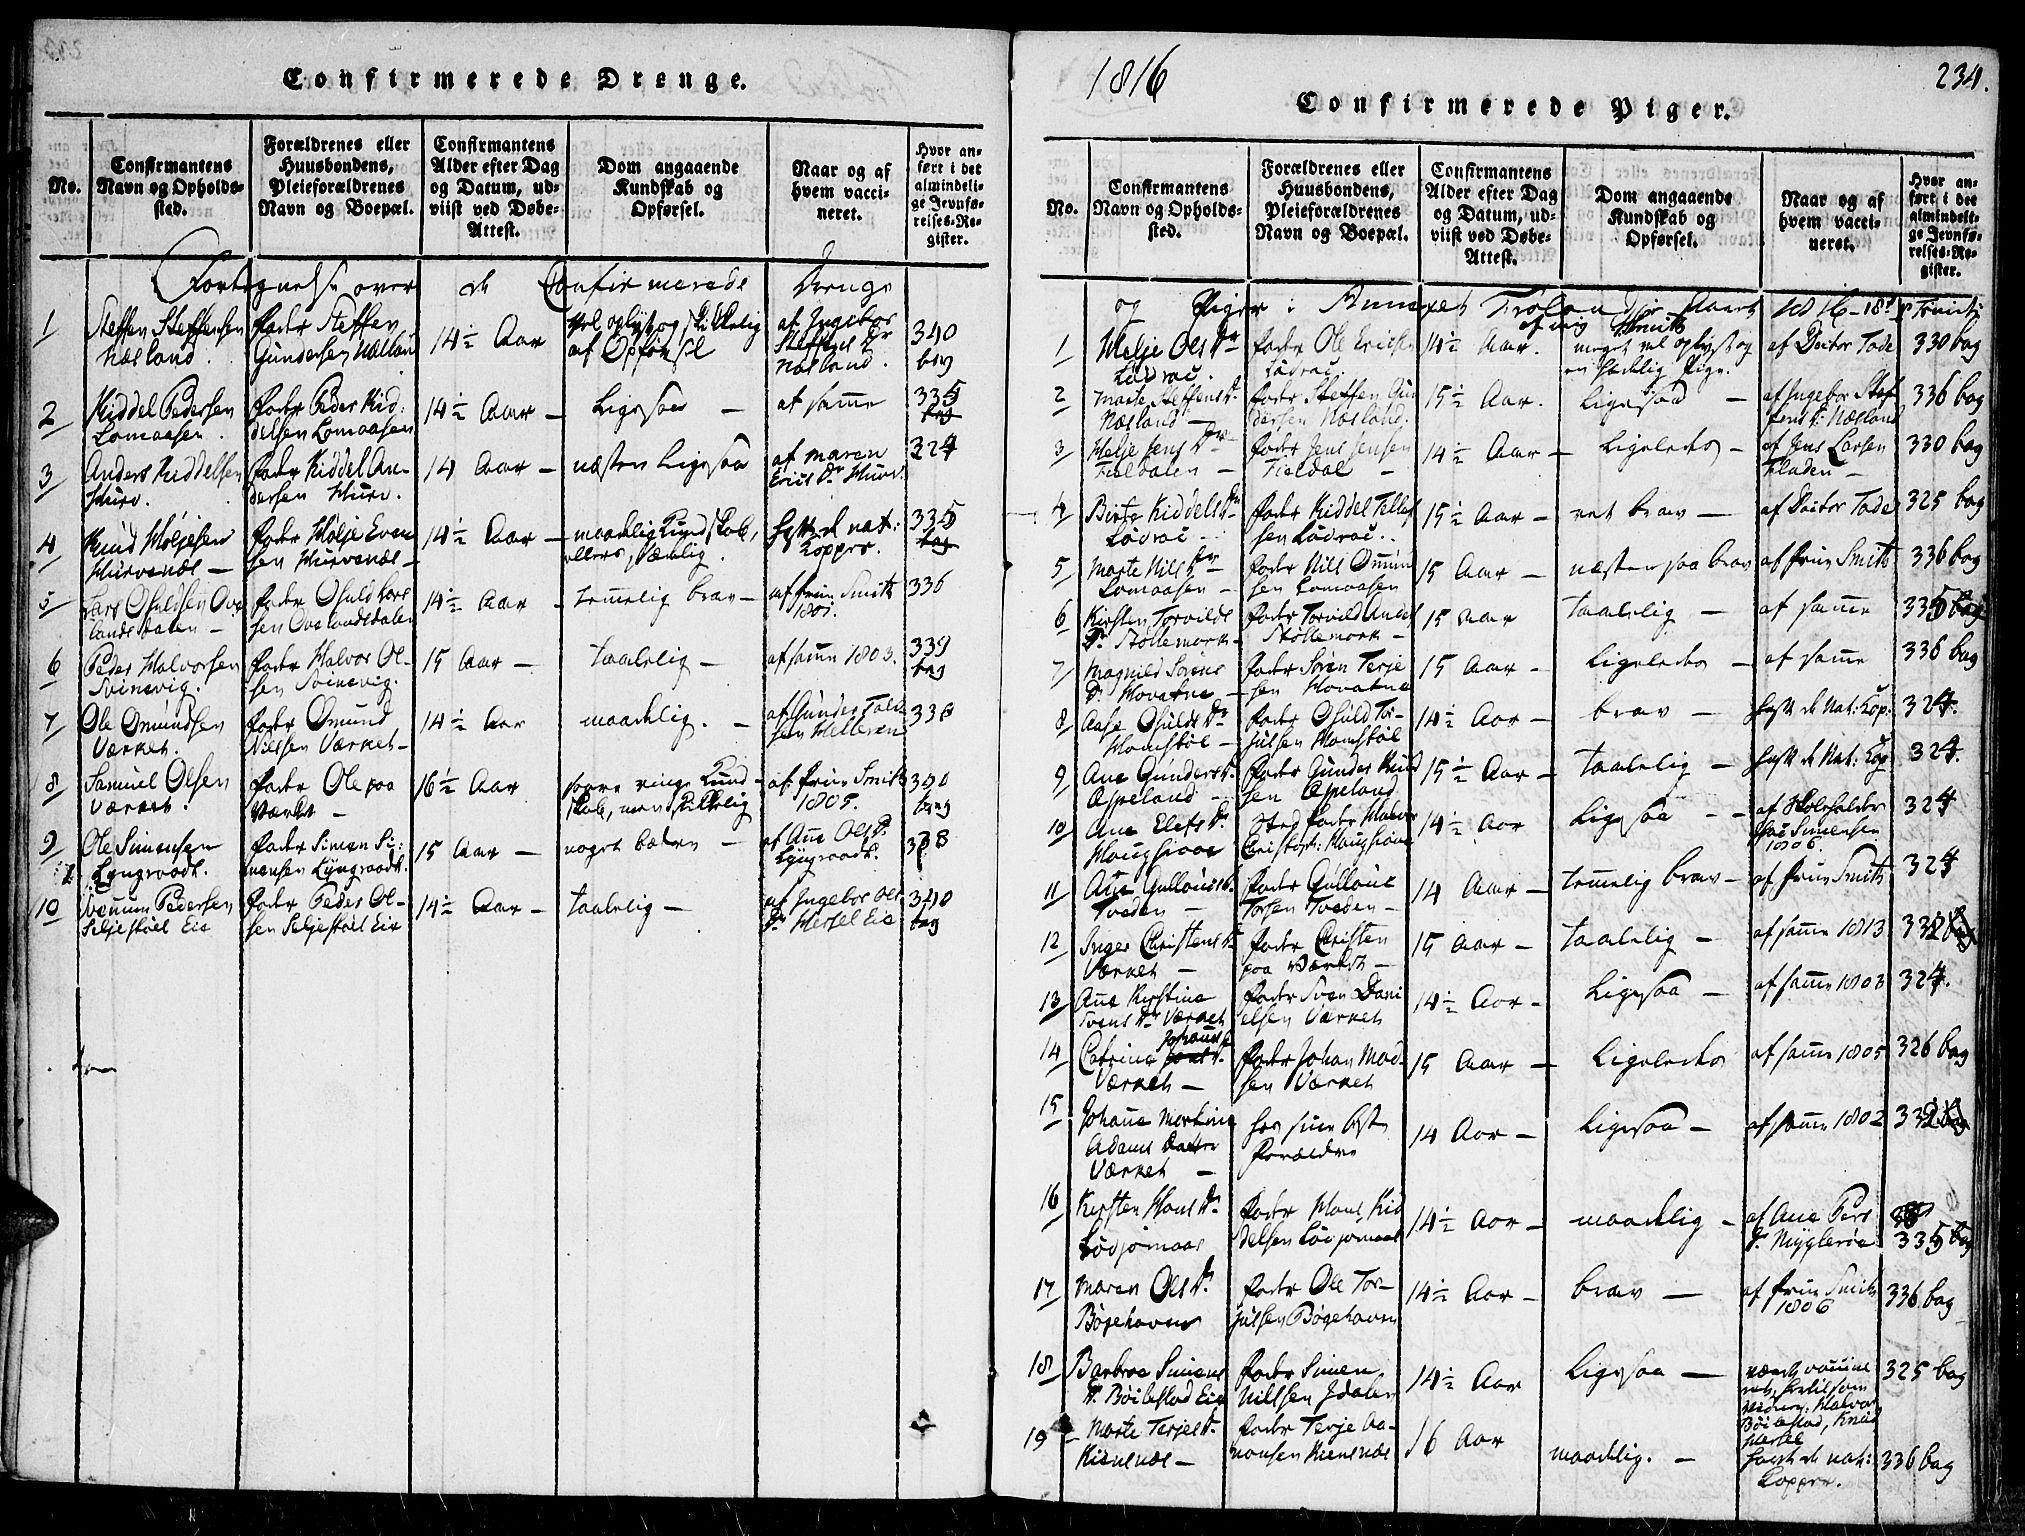 Confirmerede Drenge.
No.
Confirmantens
Navn og Opholds-
sted.
Forældrenes eller
Huusbondens,
Pleieforældrenes
Navn og Boepæl.
Confirmantens
Alder efter Dag
og Datum, ud-
viist ved Døbe-
Attest.
Dom angaaende
Kundskab og
Opførsel.
Naar og af
hvem vacci-
neret.
Hvor an-
ført i det
almindeli-
ge Jevnfø-
relses-Re-
gister.
Fortegnelse over de Confirmerede Drenge
1
Steffen Steffensen
Næsland.
Fader Steffen
Gundersen Næsland
14½ Aar
Vel oplyst og skikkelig
af Opførsel
af Ingebor
Steffens Dr
Næsland.
340
bag
2
Kiddel Pedersen
Lomaasen.
Fader Peder Kid:
delsen Lomaasen
14½ Aar –
Ligesaa –
af samme
335
bag
3
Anders Kiddelsen
Hurv.
Fader Kiddel An-
dersen Hurv.
14 Aar –
næsten Ligesaa
af Maren
Erics Dr Hurv.
324
4
Knud Høljesen
Hurvenæs –
Fader Hølje Even
sen Hurvenæs –
14½ Aar –
maadelig Kundskab,
ellers skikkelig.
havt de nat:
Kopper.
335
bag
5
Lars Osuldsen Ove
landsdalen –
Fader Osuld Lars
sen Ovelandsdalen
14½ Aar –
temmelig brav –
af frue Smith
1801.
336
6
Peder Halvorsen
Svinevig.
Fader Halvor Ol-
sen Svinevig.
15 Aar –
taalelig –
af samme 1803.
339
bag
7
Ole Omundsen
Værket.
Fader Omund
Nielsen Værket –
14½ Aar
maadelig. –
af Gunder
338
8
Samuel Olsen
Værket.
Fader Ole paa
Værket –
16½ Aar
ringe Kund-
skab, men skikkelig
af frue Smith
1805.
340
bag
9
Ole Simensen
Lyngraadt.
Fader Simen Si:
mensen Lyngraadt.
15 Aar –
noget bædre –
af Ane Ols Dr
Lyngraadt.
338
10
Pedersen
Seljestøel Eie
Fader Peder Ol-
sen Seljestøel Eie
14½ Aar –
taalelig –
af Ingebor Ols
Dr Messel Eie
340
bag
1816
234.
Confirmerede Piger.
No.
Confirmantens
Navn og Opholds-
sted.
Forældrenes eller
Huusbondens,
Pleieforældrenes
Navn og Boepæl.
Confirmantens
Alder efter Dag
og Datum, ud-
viist ved Døbe-
Attest.
Dom angaaende
Kundskab og
Opførsel.
Naar og af
hvem vacci-
neret.
Hvor an-
ført i det
almindeli-
ge Jevnfø-
relses-Re-
gister.
og Piger i Annexet Froland for Aaret 1816 – 18de p Trinit:
af mig Smith
1
Helje Ols Dr
Lødrac.
Fader Ole Ericsen
Lødrac.
14½ Aar.
meget vel oplyst og
en skikkelig Pige.
af Doctor Tode
330 bag
2
Marte Steffens Dr
Næsland –
Fader Steffen Gun
dersen Næsland.
15½ Aar.
Ligesaa –
af Ingebor Stef
fens Dr Næsland
336 bag
3
Helje Jens Dr
Fieldalen –
Fader Jens Jensen
Fieldal –
14½ Aar –
Ligeledes –
af Jens Larsen
Fladen –
330 bag
4
Birte Kiddels Dr
Lødrac –
Fader Kiddel Tellef
sen Lødrac.
15½ Aar –
ret brav –
af Doctor Tode
325 bag
5
Marte Nills Dr
Lomaasen –
Fader Nill Omun
sen Lomaasen
15 Aar –
næsten saa brav
af frue Smith
336 bag
6
Kirsten Torvilds
Dr Støllemork –
Fader Torvild Anders
Støllemork –
15 Aar
taalelig –
af samme
335 bag
7
Magnild Sørens
Dr Hovatne –
Fader Søren Terje
sen Hovatne
15 Aar –
Ligeledes –
af samme
336 bag
8
Aase Osulds Dr
Homstøl –
Fader Osuld Tor-
julsen Homstøl
14½ Aar –
brav –
havt de Nat: Kop:
324.
9
Ane Gunders Dr
Aspeland –
Fader Gunder Knud
sen Aspeland
15½ Aar –
taalelig –
havt de Nat: Kop
324.
10
Ane Elefs Dr
Haughaae
Sted Fader Halvor
Christoph: Haughaae
14½ Aar
Ligesaa –
af Skoleholder
Simensen
1806.
324
11
Ane Gulloues Dr
Tveden –
Fader Gulloue
Torsen Tveden –
14 Aar –
temmelig brav –
af frue Smith
324
12
Inger Christens Dr
Værket –
Fader Christen
paa Værket –
15 Aar –
taalelig –
af samme 1813
332 bag
13
Ane Kirstine
Svens Dr Værket
Fader Sven Dani
elsen Værket
14½ Aar –
Ligesaa –
af samme 1803
324.
14
Catrine Johans Dr
Værket –
Fader Johan Mad-
sen Værket
15 Aar –
Ligeledes
af samme 1805
326 bag
15
Johane Martine
Adams Datter
Værket –
hos sine
Forældre
14 Aar –
Ligesaa –
af samme 1802
332 bag
16
Kirsten Hans Dr
Lødjomaas
Fader Hans Kid
delsen Lødjomaas
14½ Aar –
maadelig –
af Ane Pers
Dr Mygleröe
335 bag
17
Maren Ols Dr
Bøgehaven
Fader Ole Tor-
julsen Bøgehaven
14½ Aar –
brav –
af frue Smith
1806
336 bag
18
Barbroe Simens
Dr Böilestad Eie
Fader Simen
Nillsen Idalen
14½ Aar
Ligesaa –
Halvor
Böilestad, Knud
Messel
325 bag
19
– Marte Terjes Dr
Kienenæs –
Fader Terje Aa-
nonsen Kienenæs
16 Aar
maadelig. –
havt de nat:
Kopper.
336 bag